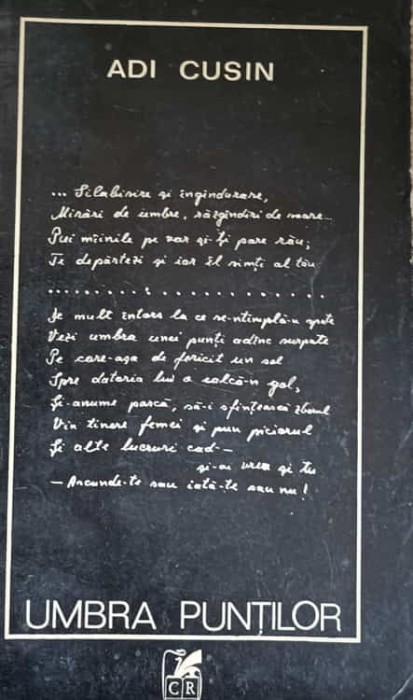 ADI CUSIN
... Silabisire și îngîndurare,
Mirări de umbre, răzgîndiri de soare...
Pui mîinile pe zar și-ți pare rău;
Te depărtezi și iar îl simți al tău.
....................
De mult întors la ce se-ntîmplă-n spate
Vezi umbra unei punți adînc surpate
Pe care-așa de fericit un sol
Spre datoria lui a călcă-n gol,
Și-anume parcă, să-i sfințească zborul
Vin tinere femei și pun piciorul
Și alte lucruri cad —
și-ai vrea și tu
— Ascunde-te sau iată-te sau nu!
UMBRA PUNȚILOR
CR